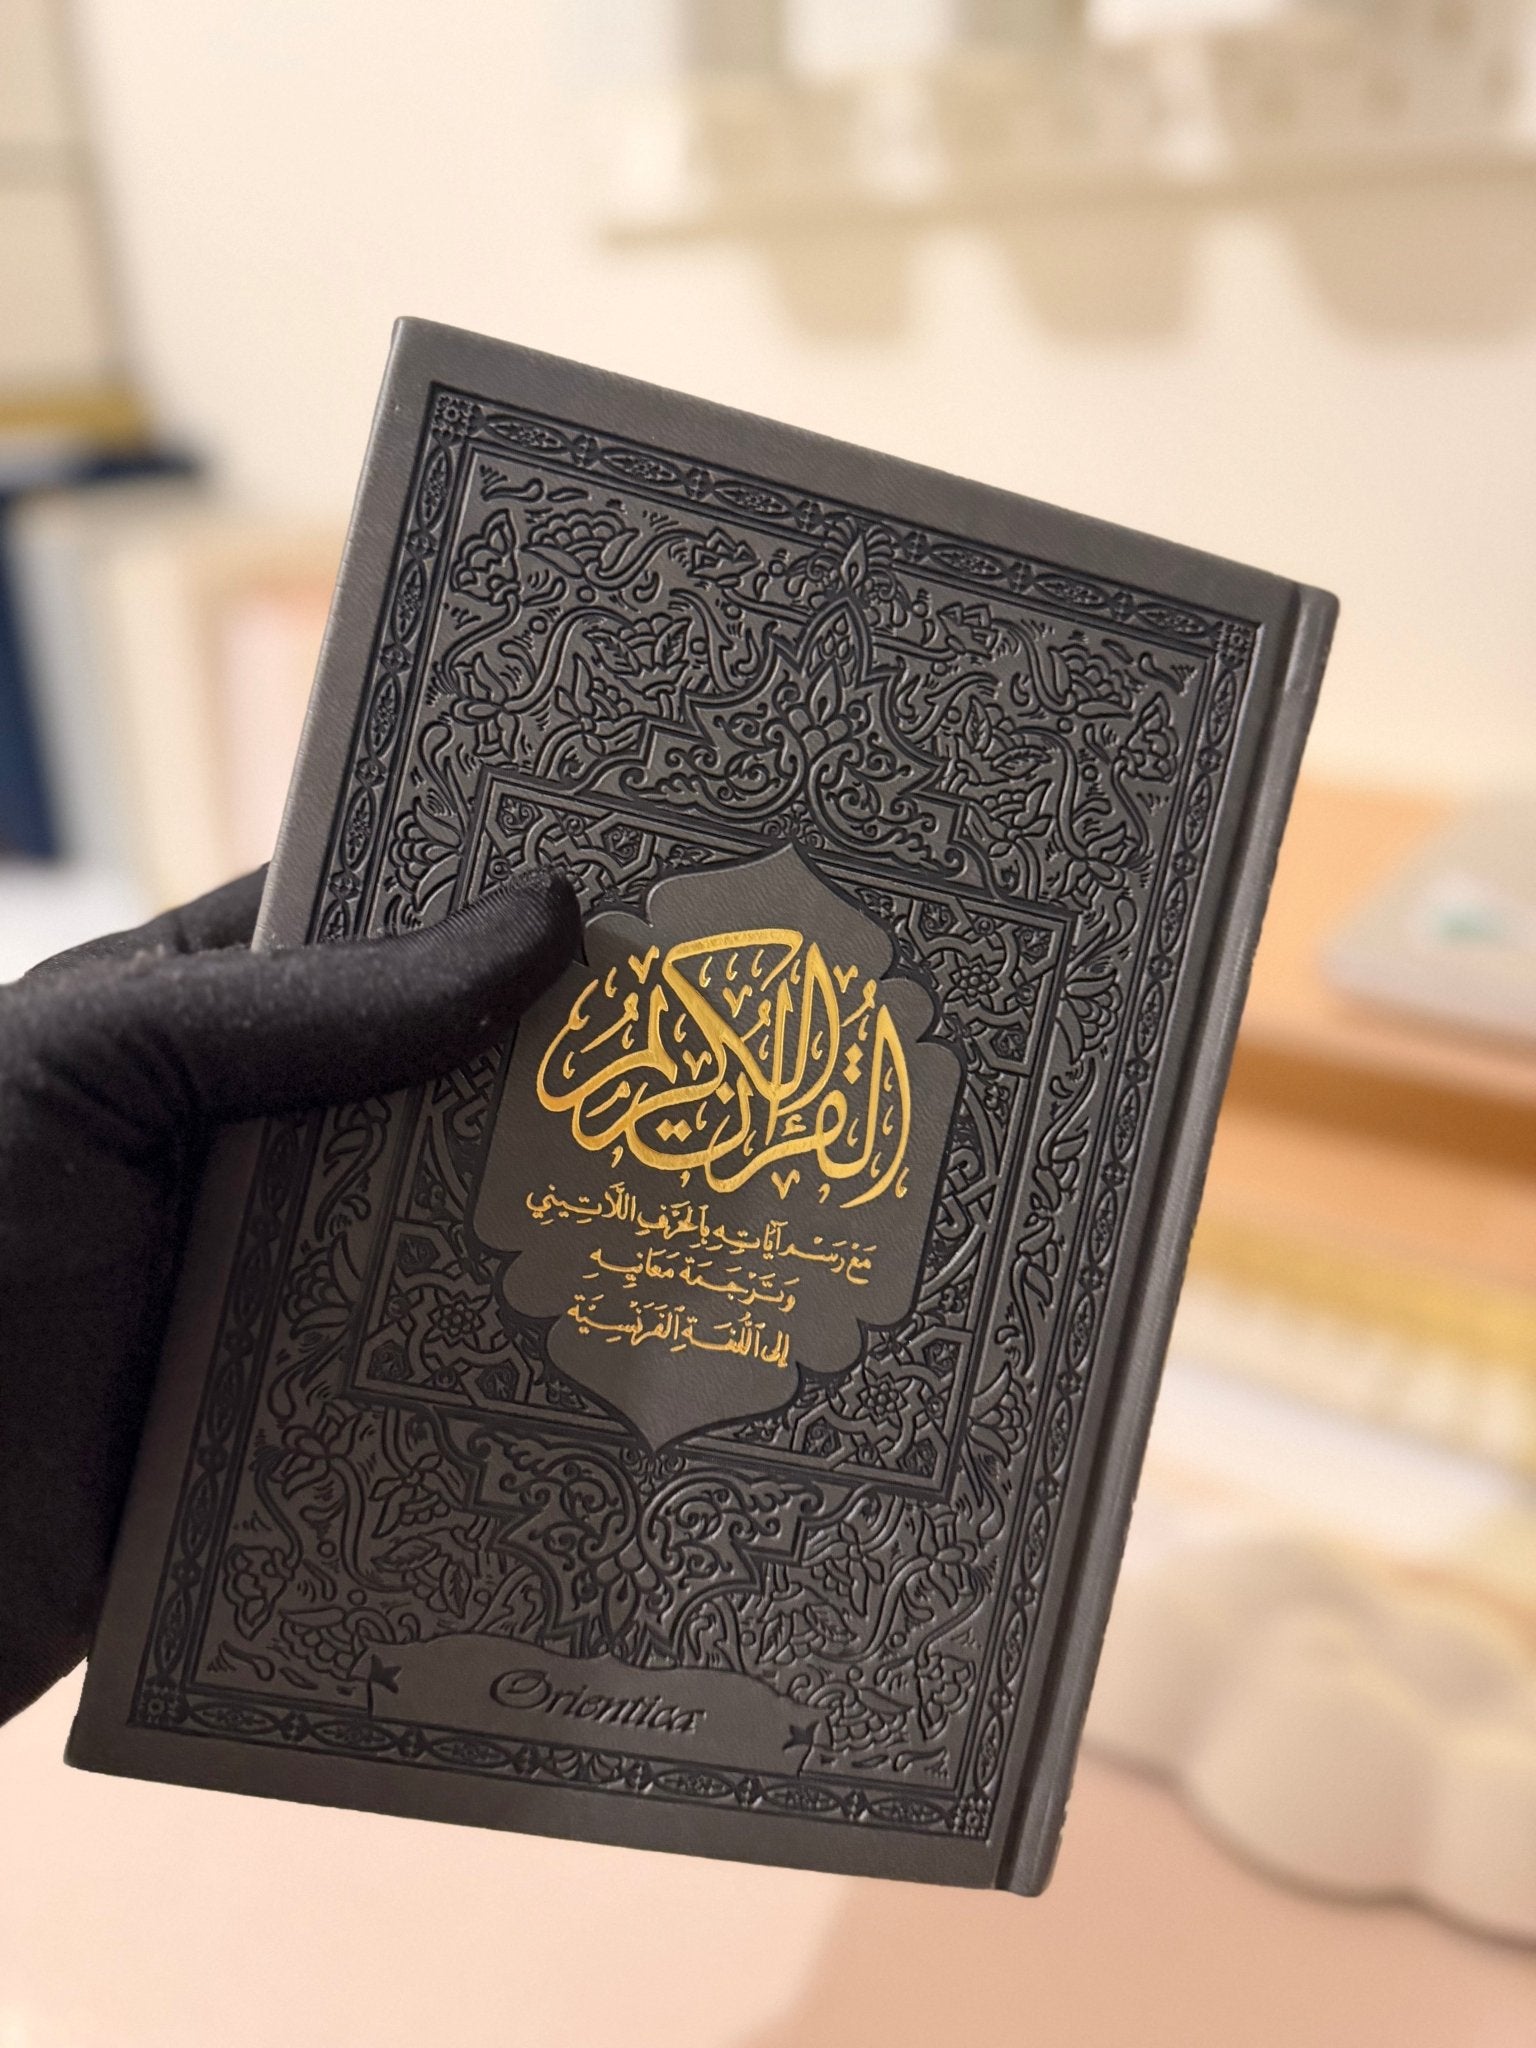 القرءان الكريم
مَعْ رَسْمِ آيَاتِهِ بِالْحَرْفِ اللَّاتِينِي
وَتَرْجَمَة مَعَانِيهِ
إلى اللُّغَةِ الفَرَنْسِيَّة
Orientica